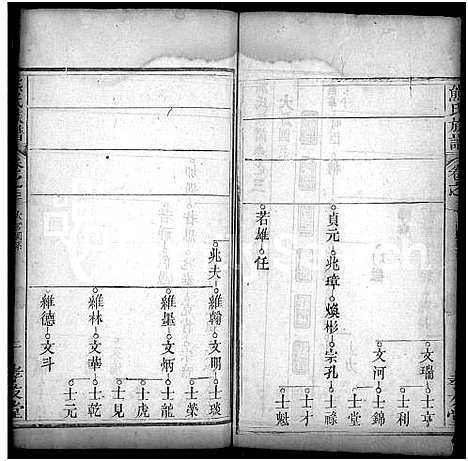 熊氏族譜
卷之
文瑞
士亨
士利
文河
士錦
士堂
貞元 兆璋 煥彬 宗孔
士祿
士才
士魁
若雄 任
兆夫
維翰 文明
士琰
士榮
維墨 文炳
士龍
士虎
士見
維林 文華
士乾
士元
維德 文斗
孝友堂